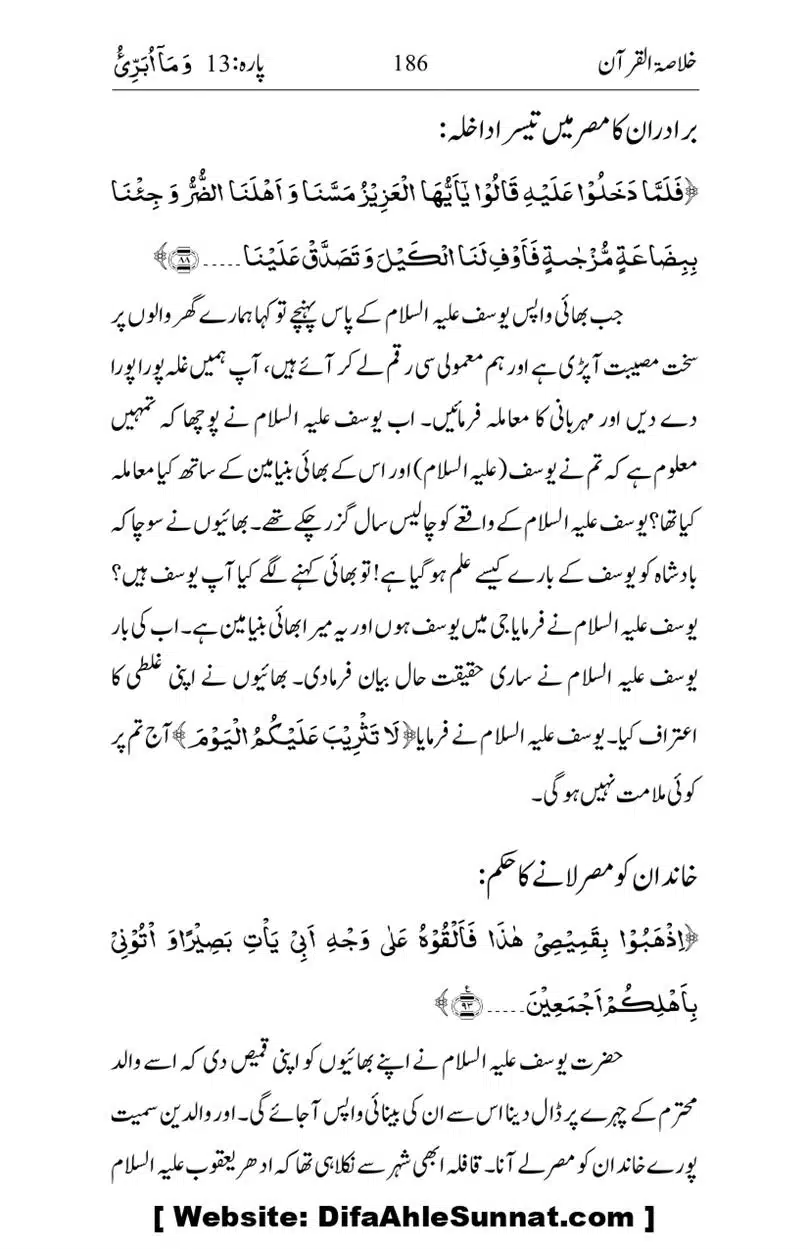 خلاصۃ القرآن 186 پارہ:13 وَمَاۤ اُبَرِّئُ
برادران کا مصر میں تیسرا داخلہ:
﴿فَلَمَّا دَخَلُوْا عَلَیْهِ قَالُوْا یٰۤاَیُّهَا الْعَزِیْزُ مَسَّنَا وَ اَهْلَنَا الضُّرُّ وَ جِئْنَا
بِبِضَاعَةٍ مُّزْجٰىةٍ فَاَوْفِ لَنَا الْكَیْلَ وَ تَصَدَّقْ عَلَیْنَا.....﴿۸۸﴾﴾
جب بھائی واپس یوسف علیہ السلام کے پاس پہنچے تو کہا ہمارے گھر والوں پر
سخت مصیبت آپڑی ہے اور ہم معمولی سی رقم لے کر آئے ہیں، آپ ہمیں غلہ پورا پورا
دے دیں اور مہربانی کا معاملہ فرمائیں۔ اب یوسف علیہ السلام نے پوچھا کہ تمہیں
معلوم ہے کہ تم نے یوسف (علیہ السلام) اور اس کے بھائی بنیامین کے ساتھ کیا معاملہ
کیا تھا؟ یوسف علیہ السلام کے واقعے کو چالیس سال گزر چکے تھے۔ بھائیوں نے سوچا کہ
بادشاہ کو یوسف کے بارے کیسے علم ہو گیا ہے! تو بھائی کہنے لگے کیا آپ یوسف ہیں؟
یوسف علیہ السلام نے فرمایا جی میں یوسف ہوں اور یہ میرا بھائی بنیامین ہے۔ اب کی بار
یوسف علیہ السلام نے ساری حقیقت حال بیان فرمادی۔ بھائیوں نے اپنی غلطی کا
اعتراف کیا۔ یوسف علیہ السلام نے فرمایا ﴿لَا تَثْرِیْبَ عَلَیْكُمُ الْیَوْمَ﴾ آج تم پر
کوئی ملامت نہیں ہو گی۔
خاندان کو مصر لانے کا حکم:
﴿اِذْهَبُوْا بِقَمِیْصِیْ هٰذَا فَاَلْقُوْهُ عَلٰی وَجْهِ اَبِیْ یَاْتِ بَصِیْرًا وَ اْتُوْنِیْ
بِاَهْلِكُمْ اَجْمَعِیْنَ.....﴿۹۳﴾﴾
حضرت یوسف علیہ السلام نے اپنے بھائیوں کو اپنی قمیص دی کہ اسے والد
محترم کے چہرے پر ڈال دینا اس سے ان کی بینائی واپس آجائے گی۔ اور والدین سمیت
پورے خاندان کو مصر لے آنا۔ قافلہ ابھی شہر سے نکلا ہی تھا کہ ادھر یعقوب علیہ السلام
[ Website: DifaAhleSunnat.com ]